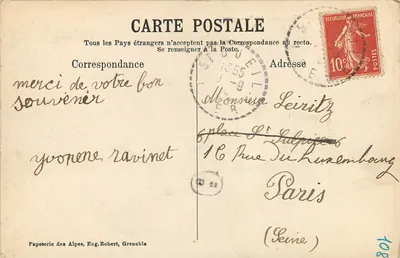 CARTE POSTALE
Tous les Pays étrangers n'acceptent pas la Correspondance au recto.
Se renseigner à la Poste.
Correspondance
Adresse
merci de votre bon
souvenir
yvonene ravinet
Monsieur Leiritz
6 place St Sulpice 6
16 Rue du Luxembourg
Paris
(Seine)
10c
POSTES
Papeteries des Alpes, Eug. Robert, Grenoble
108